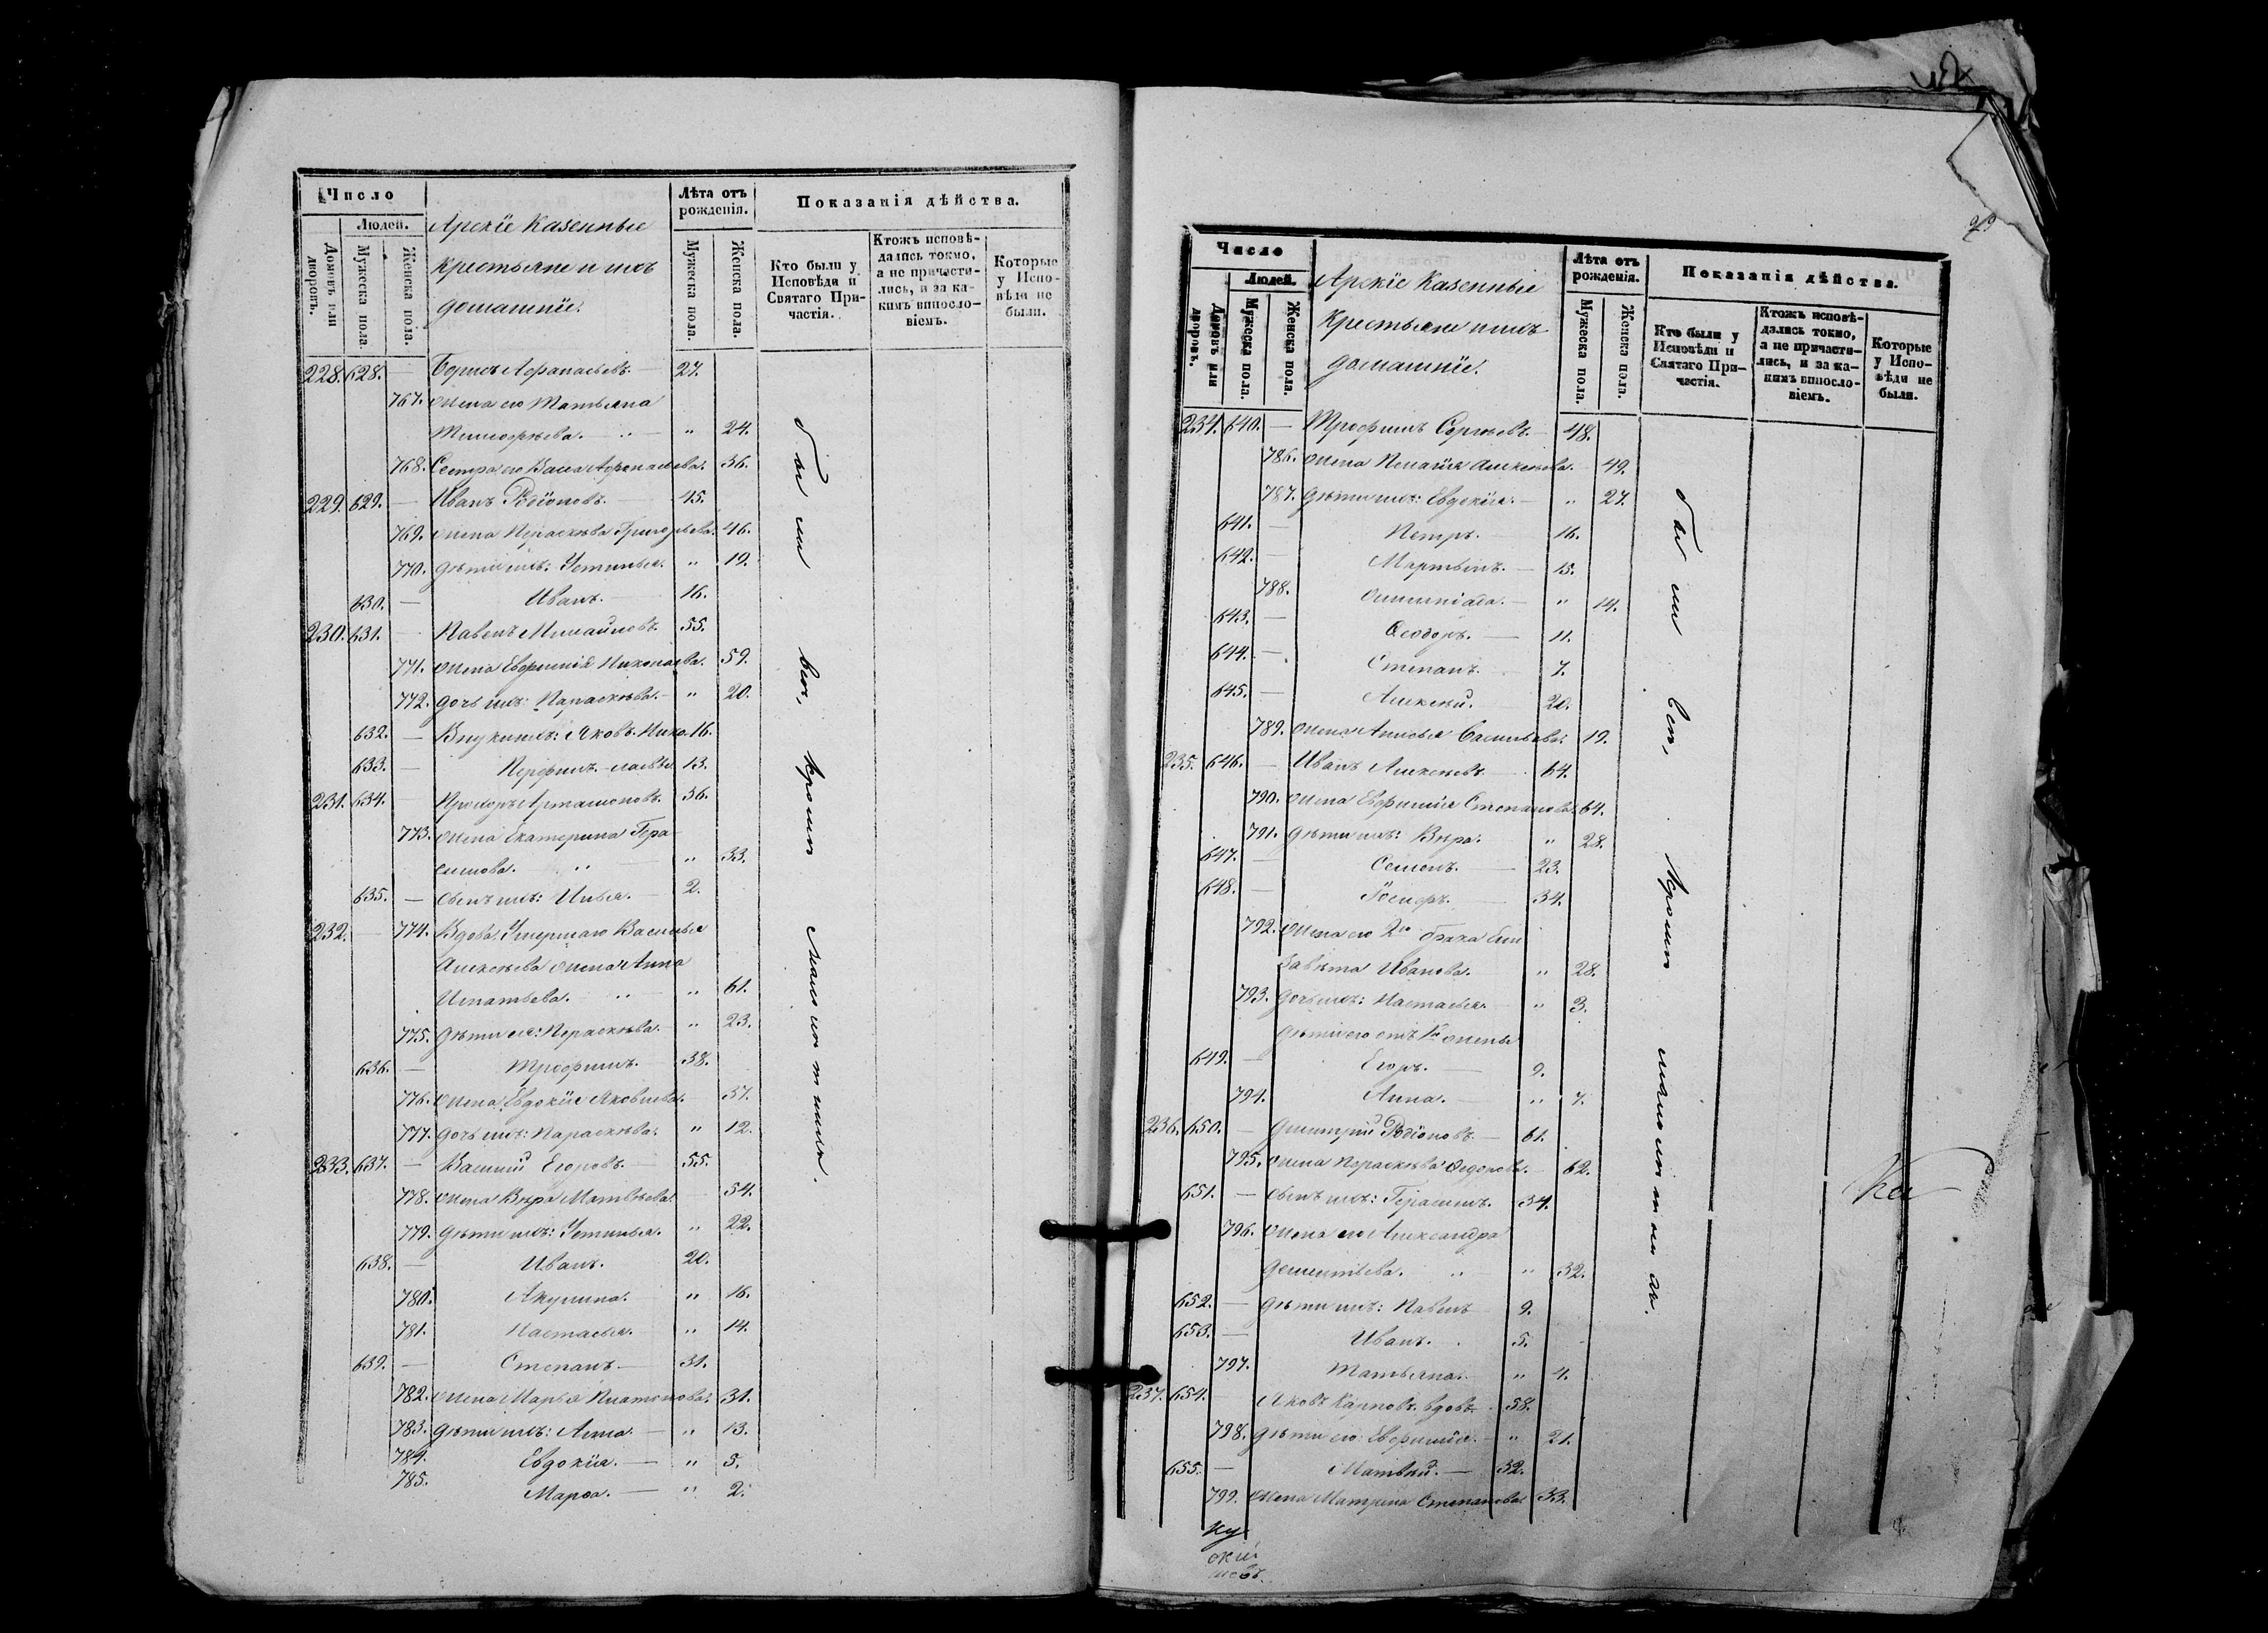 Число
Людей.
Домовъ или дворовъ.
Мужеска пола.
Женска пола.
Арскіе Казенные
крестьяне и ихъ
домашніе.
Лѣта отъ рожденія.
Мужеска пола.
Женска пола.
Показанія дѣйства.
Кто были у Исповѣди и Святаго Причастія.
Ктожъ исповѣдались токмо, а не причастились, и за какимъ винословіемъ.
Которые у Исповѣди не были.
228. 628. — Борисъ Аѳанасьевъ. — 27.
767. жена его Татьяна
Тимофѣева. — „ — „ 24.
768. Сестра его Васса Аѳанасьева. 36.
229. 629. — Иванъ Родіоновъ. — 45.
769. жена Параскѣва Григорьева. 46.
770. дѣти ихъ: Устинья. „ 19.
630. — Иванъ. — 16.
230. 631. Павелъ Михайловъ. 55.
771. жена Евфимія Николаева. 59.
772. дочь ихъ: Параскѣва. — „ 20.
632. — Внуки ихъ: Яковъ. Нико- 16.
633. — Перфилъ. -лаевы 13.
231. 634. Прохоръ Артамоновъ. 36.
773. жена Екатерина Гера-
симова. „ — „ 33.
635. — сынъ ихъ: Илья. — 2.
232. — 774. Вдова, Умершаго Василья
Алексѣева жена Анна
Игнатьева. „ — „ 61.
775. дѣти ея: Параскѣва. — „ 23.
636. — Трофимъ. — 38.
776. жена Евдокія Яковлева. 37.
777. дочь ихъ: Параскѣва. „ 12.
233. 637. — Василій Егоровъ. — 55.
778. жена Вѣра Матвѣева. — 54.
779. дѣти ихъ: Устинья. „ 22.
638. — Иванъ. 20.
780. Акулина. „ 16.
781. Настасья. — „ 14.
639. — Степанъ. — 31.
782. жена Марья Платонова. 31.
783. дѣти ихъ: Анна. — „ 13.
784. Евдокія. — „ 5.
785. Марѳа. — „ 2.
были всѣ, кромѣ малолѣтнихъ.
Число
Людей.
Домовъ или дворовъ.
Мужеска пола.
Женска пола.
Арскіе Казенные
крестьяне и ихъ
домашніе.
Лѣта отъ рожденія.
Мужеска пола.
Женска пола.
Показанія дѣйства.
Кто были у Исповѣди и Святаго Причастія.
Ктожъ исповѣдались токмо, а не причастились, и за какимъ винословіемъ.
Которые у Исповѣди не были.
234. 640. — Трофимъ Сергѣевъ. — 48.
786. жена Пелагія Алексѣева. — 49.
787. дѣти ихъ: Евдокія. — „ 27.
641. — Петръ. — 16.
642. — Мартынъ. — 15.
788. Олимпіада. — „ 14.
643. — Ѳеодоръ. — 11.
644. — Степанъ. — 7.
645. — Алексѣй. — 20.
789. жена Анисья Васильева. 19.
235. 646. — Иванъ Алексѣевъ. — 64.
790. жена Евфимія Степанова. 64.
791. дѣти ихъ: Вѣра. „ 28.
647. — Семенъ. — 23.
648. — Іосифъ. — 34.
792. жена его 2го брака Ели-
завѣта Иванова. „ 28.
793. дочь ихъ: Настасья. „ 3.
дѣти его отъ 1й жены
649. — Егоръ. — 9.
794. Анна. — „ 7.
236. 650. — Димитрій Родіоновъ. — 61.
795. жена Параскѣва Ѳедорова. 62.
651. — сынъ ихъ: Герасимъ. 34.
796. жена его Александра
Дементьева. „ „ 32.
652. — дѣти ихъ: Павелъ 9.
653. — Иванъ. 5.
797. Татьяна. „ 4.
237. 654. Яковъ Карповъ. вдовъ. 58.
798. дѣти его: Евфимія. — „ 21.
655. — Матвѣй. — 32.
799. жена Матрена Степанова. 33.
были всѣ, кромѣ малолѣтнихъ.